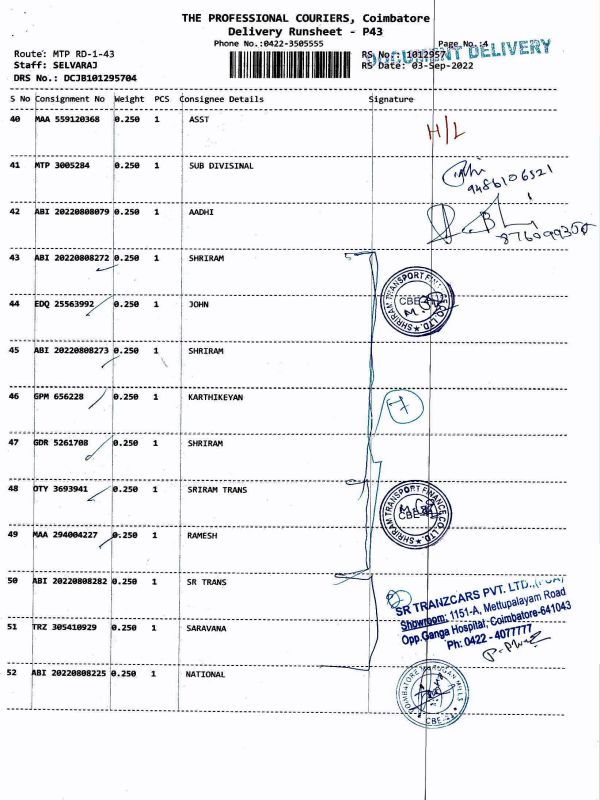 THE PROFESSIONAL COURIERS, Coimbatore
Delivery Runsheet - P43
Phone No.:0422-3505555
Page No.:4
DOCUMENT DELIVERY
Route: MTP RD-1-43
RS No.: 1012957
Staff: SELVARAJ
RS Date: 03-Sep-2022
DRS No.: DCJB101295704
S No Consignment No Weight PCS Consignee Details Signature
40 MAA 559120368 0.250 1 ASST
H/L
41 MTP 3005284 0.250 1 SUB DIVISINAL
9486106321
42 ABI 20220808079 0.250 1 AADHI
43 ABI 20220808272 0.250 1 SHRIRAM
SHRIRAM TRANSPORT FINANCE CO. LTD.
CBE
44 EDQ 25563992 0.250 1 JOHN
45 ABI 20220808273 0.250 1 SHRIRAM
46 GPM 656228 0.250 1 KARTHIKEYAN
7
47 GDR 5261708 0.250 1 SHRIRAM
48 OTY 3693941 0.250 1 SRIRAM TRANS
SHRIRAM TRANSPORT FINANCE CO. LTD.
CBE
49 MAA 294004227 0.250 1 RAMESH
50 ABI 20220808282 0.250 1 SR TRANS
2
SR TRANZCARS PVT. LTD.,
Showroom: 1151-A, Mettupalayam Road
Opp.Ganga Hospital, Coimbatore-641043
Ph: 0422 - 4077777
51 TRZ 305410929 0.250 1 SARAVANA
52 ABI 20220808225 0.250 1 NATIONAL
COIMBATORE MURUGAN MILLS
CBE